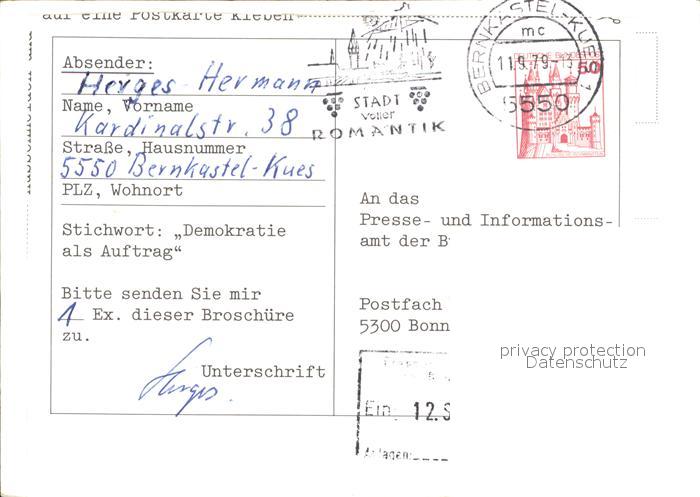 auf eine Postkarte kleben
Absender:
Herges Hermann
Name, Vorname
Kardinalstr. 38
Straße, Hausnummer
5550 Bernkastel-Kues
PLZ, Wohnort
Stichwort: „Demokratie
als Auftrag“
Bitte senden Sie mir
1 Ex. dieser Broschüre
zu.
Unterschrift
Herges
STADT
voller
ROMANTIK
BERNKASTEL-KUES 1
mc
11.9.79-13
5550
DEUTSCHE BUNDES
50
An das
Presse- und Informations-
amt der B
Postfach
5300 Bonn
privacy protection
Datenschutz
Ein 12. S
Anlagen: